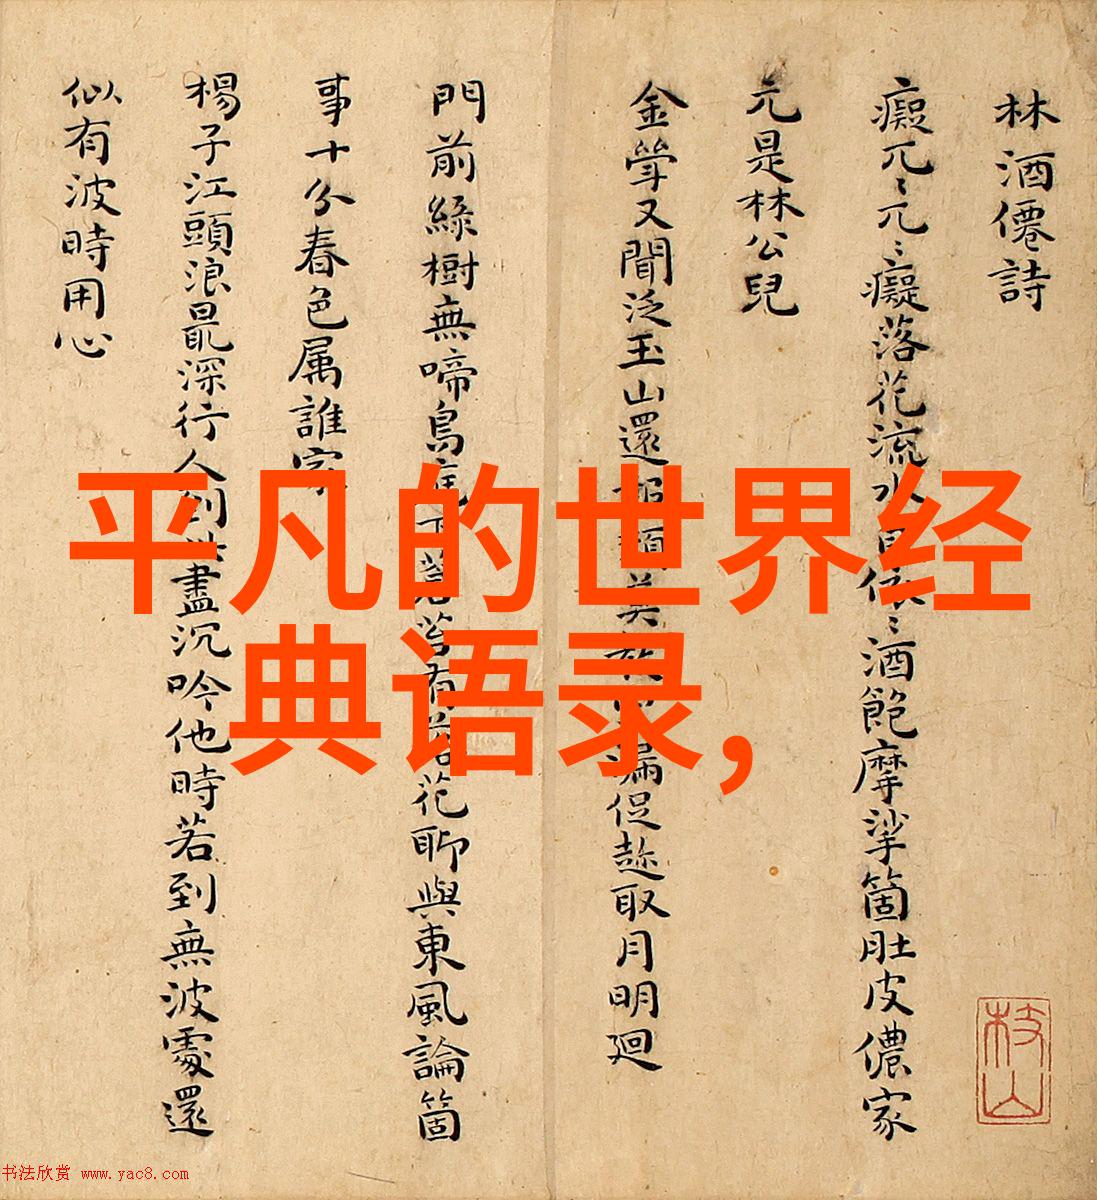 林酒僊詩
癡兀〻兀〻癡落花流水見依〻酒飽摩挲箇肚皮儂家
元是林公兒
金斝又聞泛玉山還 頹莫 漏促趂取月明廻
門前綠樹無啼鳥庭下蒼苔有落花聊與東風論箇
事十分春色属誰家
楊子江頭浪㝡深行人到此盡沉吟他時若到無波處還
似有波時用心
枝山
平凡的世界经
典语录,
书法欣赏 www.yac8.com